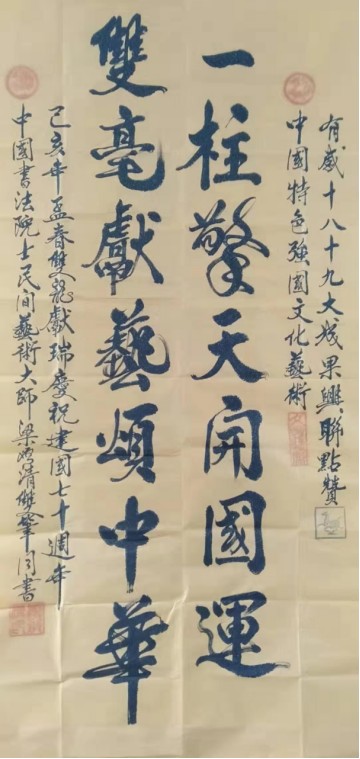 有感十八十九大成果興聯點贊
中國特色強國文化藝術
一柱擎天開國運
雙亳獻藝頌中華
己亥年孟春雙龍獻瑞慶祝建國七十週年
中國書法院士民間藝術大師梁清雙筆同書